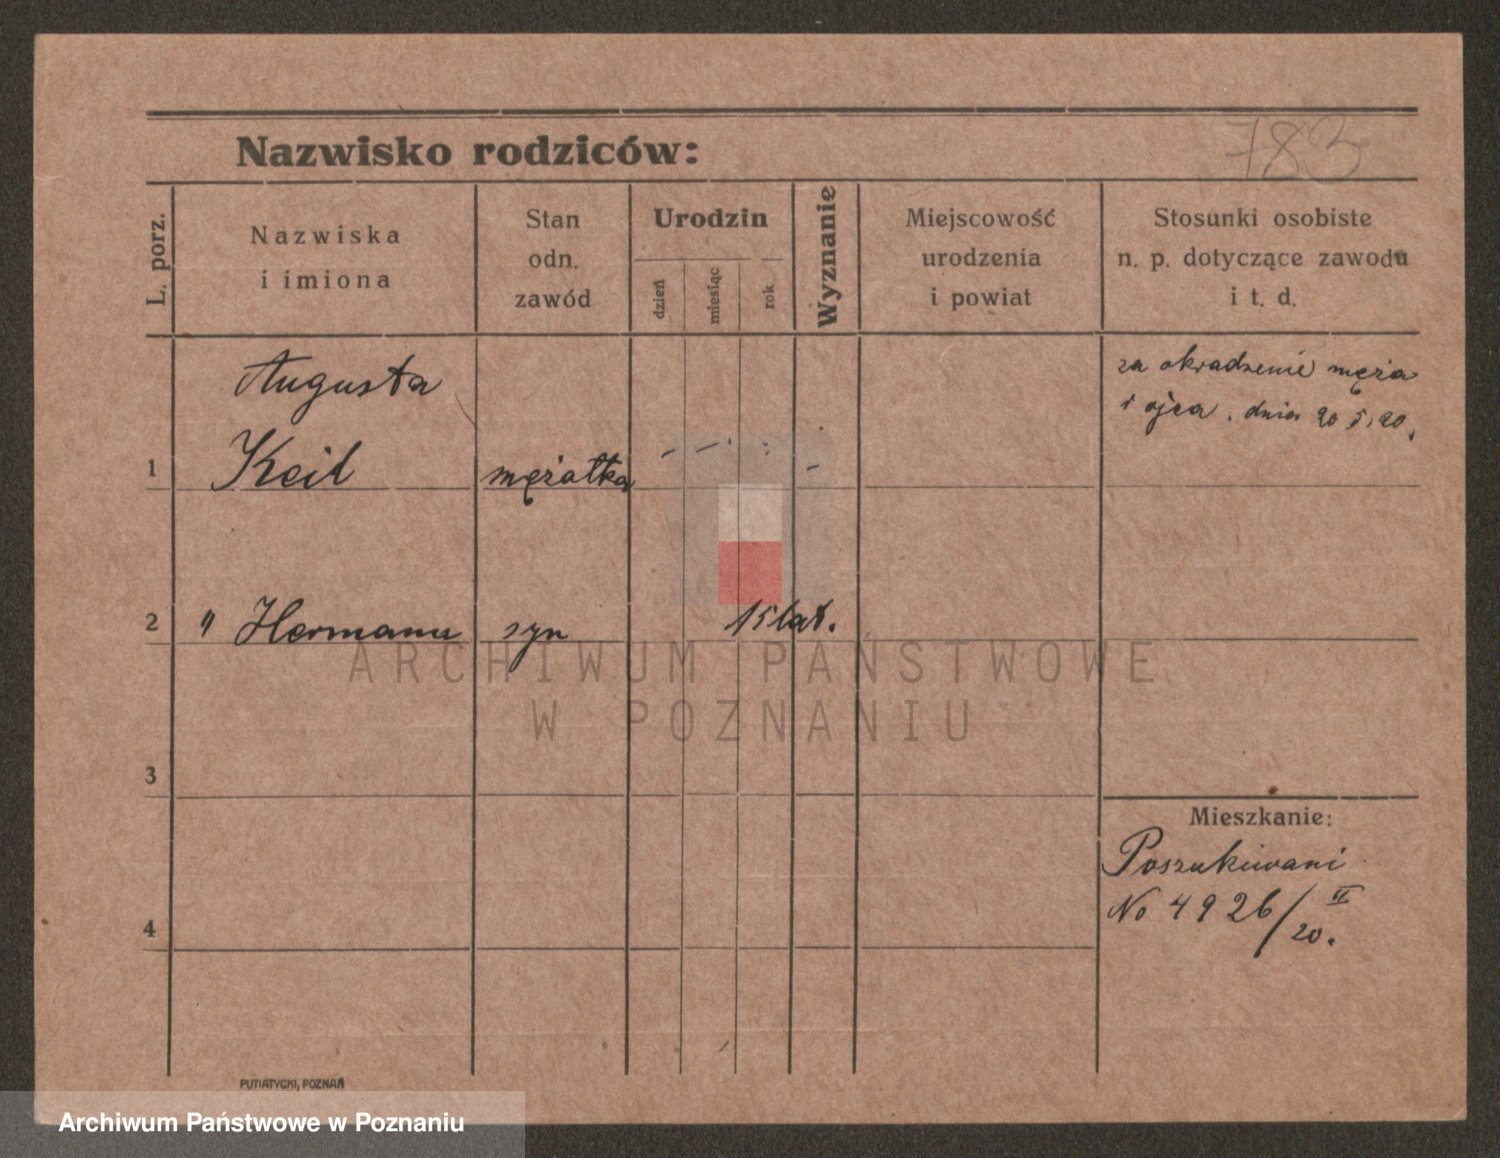 783
Nazwisko rodziców:
L. porz.
Nazwiska
i imiona
Stan
odn.
zawód
Urodzin
dzień
miesiąc
rok
Wyznanie
Miejscowość
urodzenia
i powiat
Stosunki osobiste
n. p. dotyczące zawodu
i t. d.
Augusta
1 Keil mężatka
za okradzenie męża
i ojca, dnia 20.5.20.
2 " Hermann syn 15 lat.
ARCHIWUM PAŃSTWOWE
W POZNANIU
3
Mieszkanie:
Poszukiwani
No 4926/II
20.
4
PUTIATYCKI, POZNAŃ
Archiwum Państwowe w Poznaniu